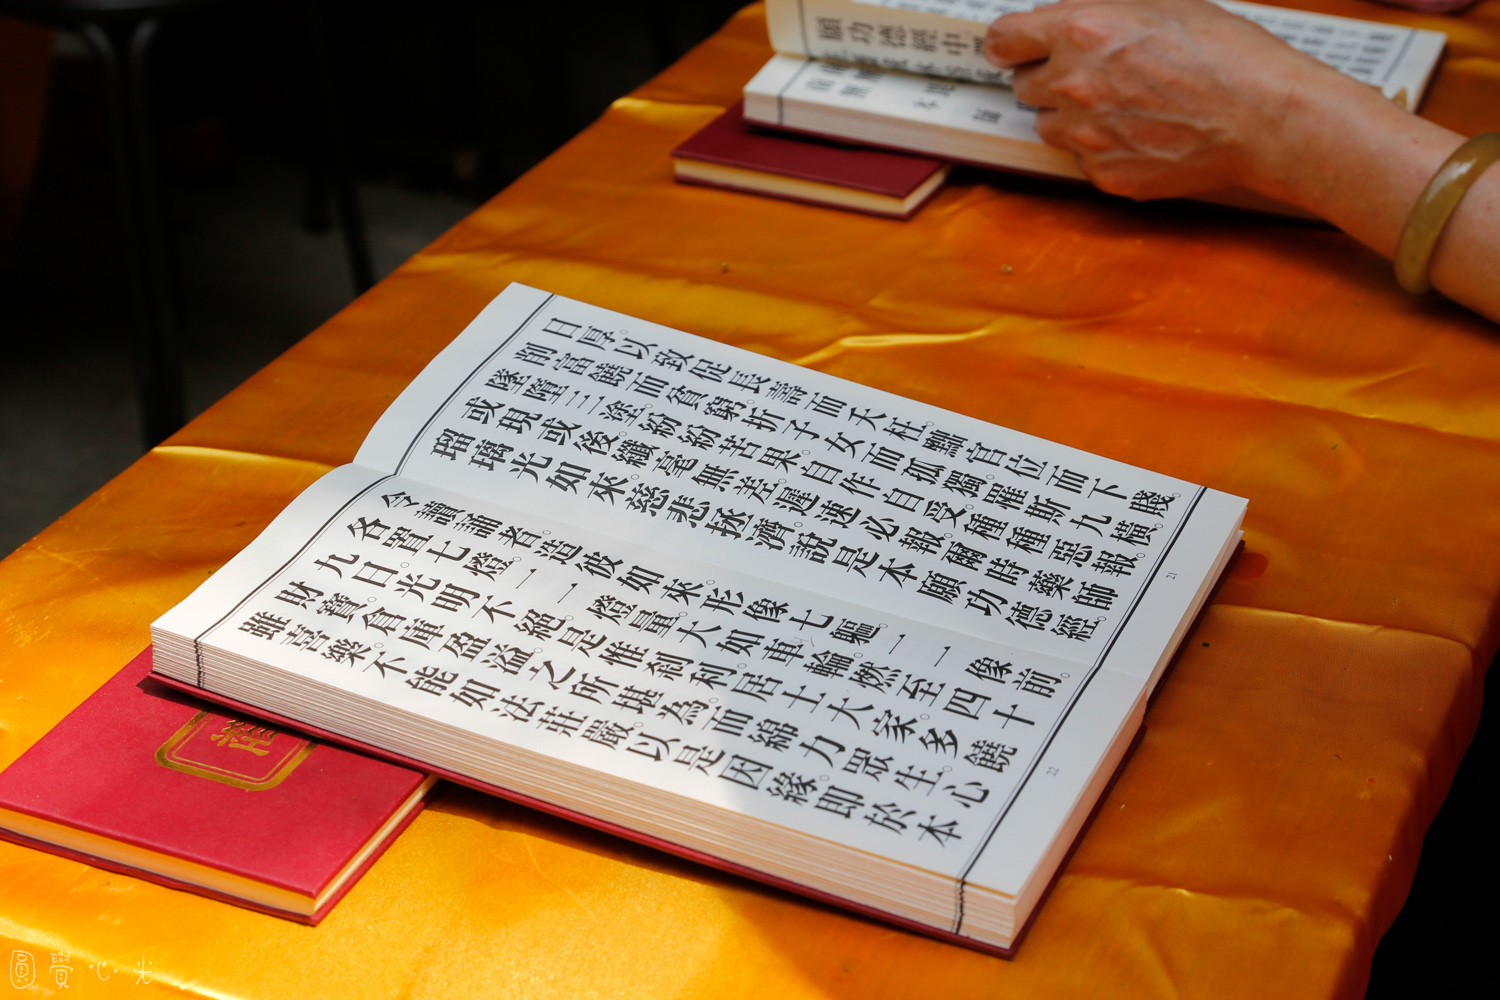 日厚。以致促長壽而夭枉。黜官位而下賤。
削富饒而貧窮。折子女而孤獨。罹斯九橫。
墜墮三塗。紛紛苦果。自作自受。種種惡報。
或現或後。纖毫無差。遲速必報。爾時藥師
瑠璃光如來。慈悲拯濟。說是本願功德經。
21
今讀誦者。造彼如來。形像七軀。一一像前。
各置七燈。一一燈量。大如車輪。燃至四十
九日。光明不絕。是惟剎利。居士大家。多饒
財寶。倉庫盈溢。之所堪為。而綿力眾生。心
雖喜樂。不能如法莊嚴。以是因緣。即於本
22
願功德經中
圓覺心光